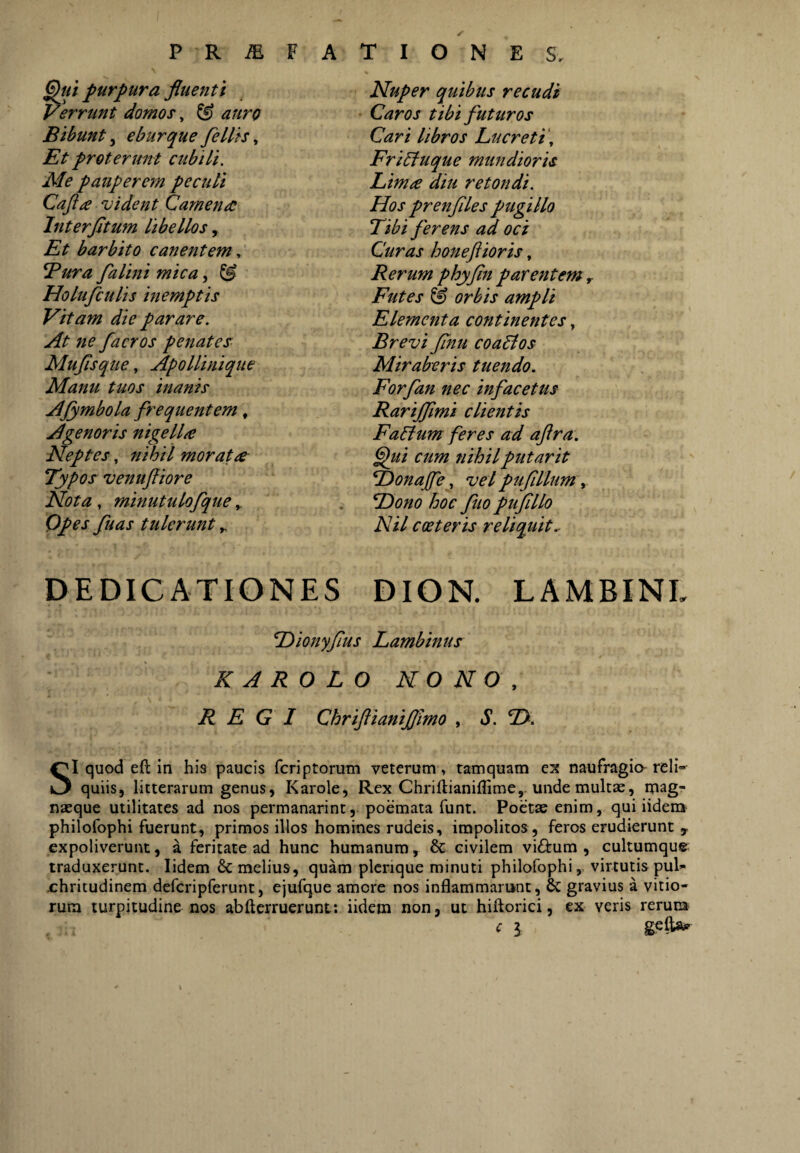 PRÆFATIONES.
Qui purpura fluenti
Verrunt domos, & auro
Bibunt, eburque fellis,
Et proterunt cubili.
Me pauperem peculi
Caſtæ vident Camenæ
Interſitum libellos,
Et barbito canentem,
Pura ſalini mica, &
Holuſculis inemptis
Vitam die parare.
At ne ſacros penates
Muſisque, Apollinique
Manu tuos inanis
Aſymbola frequentem,
Agenoris nigellæ
Neptes, nihil moratæ
Typos venuſtiore
Nota, minutuloſque,
Opes ſuas tulerunt,
Nuper quibus recudi
Caros tibi futuros
Cari libros Lucreti,
Frictuque mundioris
Limæ diu retondi.
Hos prenſiles pugillo
Tibi ferens ad oci
Curas honeſtioris,
Rerum phyſin parentem,
Futes & orbis ampli
Elementa continentes,
Brevi ſinu coactos
Miraberis tuendo.
Forſan nec infacetus
Rariſſimi clientis
Factum feres ad aſtra.
Qui cum nihil putarit
Donaſſe, vel puſillum,
Dono hoc ſuo puſillo
Nil cœteris reliquit.
DEDICATIONES DION. LAMBINI.
Dionyſius Lambinus
KAROLO NONO,
REGI Chriſtianiſſimo, S. D.
SI quod eſt in his paucis ſcriptorum veterum, tamquam ex naufragio reli-
quiis, litterarum genus, Karole, Rex Chriſtianiſſime, unde multæ, mag-
næque utilitates ad nos permanarint, poëmata ſunt. Poëtæ enim, qui iidem
philoſophi fuerunt, primos illos homines rudeis, impolitos, feros erudierunt,
expoliverunt, à feritate ad hunc humanum, & civilem victum, cultumque
traduxerunt. Iidem & melius, quàm plerique minuti philoſophi, virtutis pul-
chritudinem deſcripſerunt, ejuſque amore nos inflammarunt, & gravius à vitio-
rum turpitudine nos abſterruerunt: iidem non, ut hiſtorici, ex veris rerum
c 3 geſta-